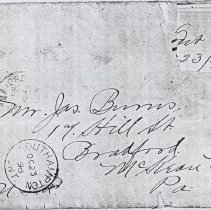 Oct
23/
Mr Jas Burns.
17 Hill St
Bradford
McKean
Pa
SOUTHAMPTON
OC 23